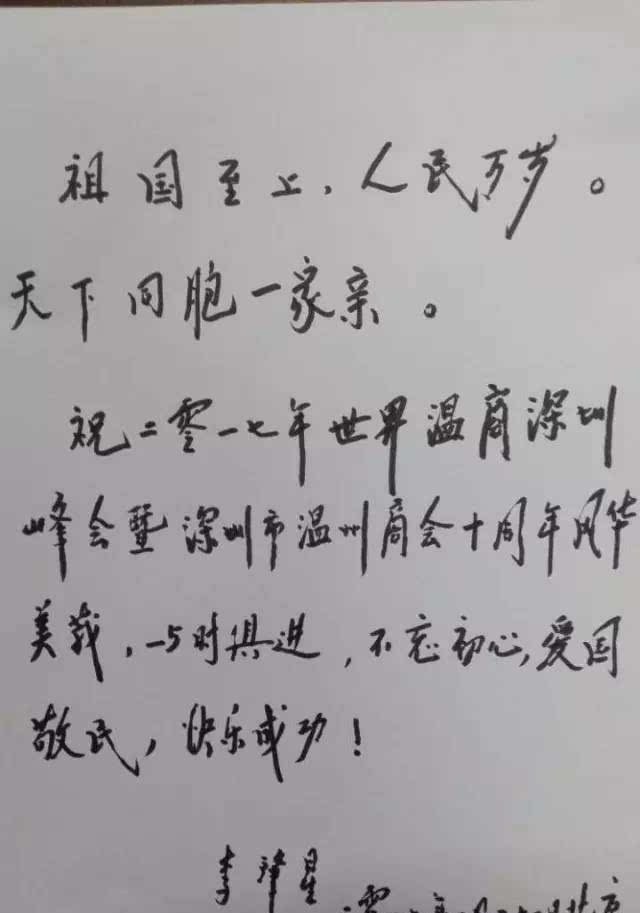 祖国至上，人民万岁。
天下同胞一家亲。
祝二零一七年世界温商深圳
峰会暨深圳市温州商会十周年风华
美哉，与时俱进，不忘初心，爱国
敬民，快乐成功！
李肇星